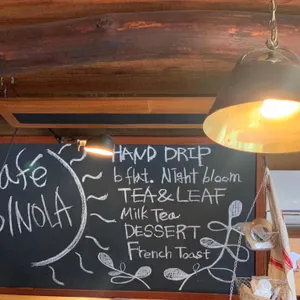 afe
INOLA
HAND DRIP
b flat. Night bloom
TEA & LEAF
Milk Tea
DESSERT
French Toast